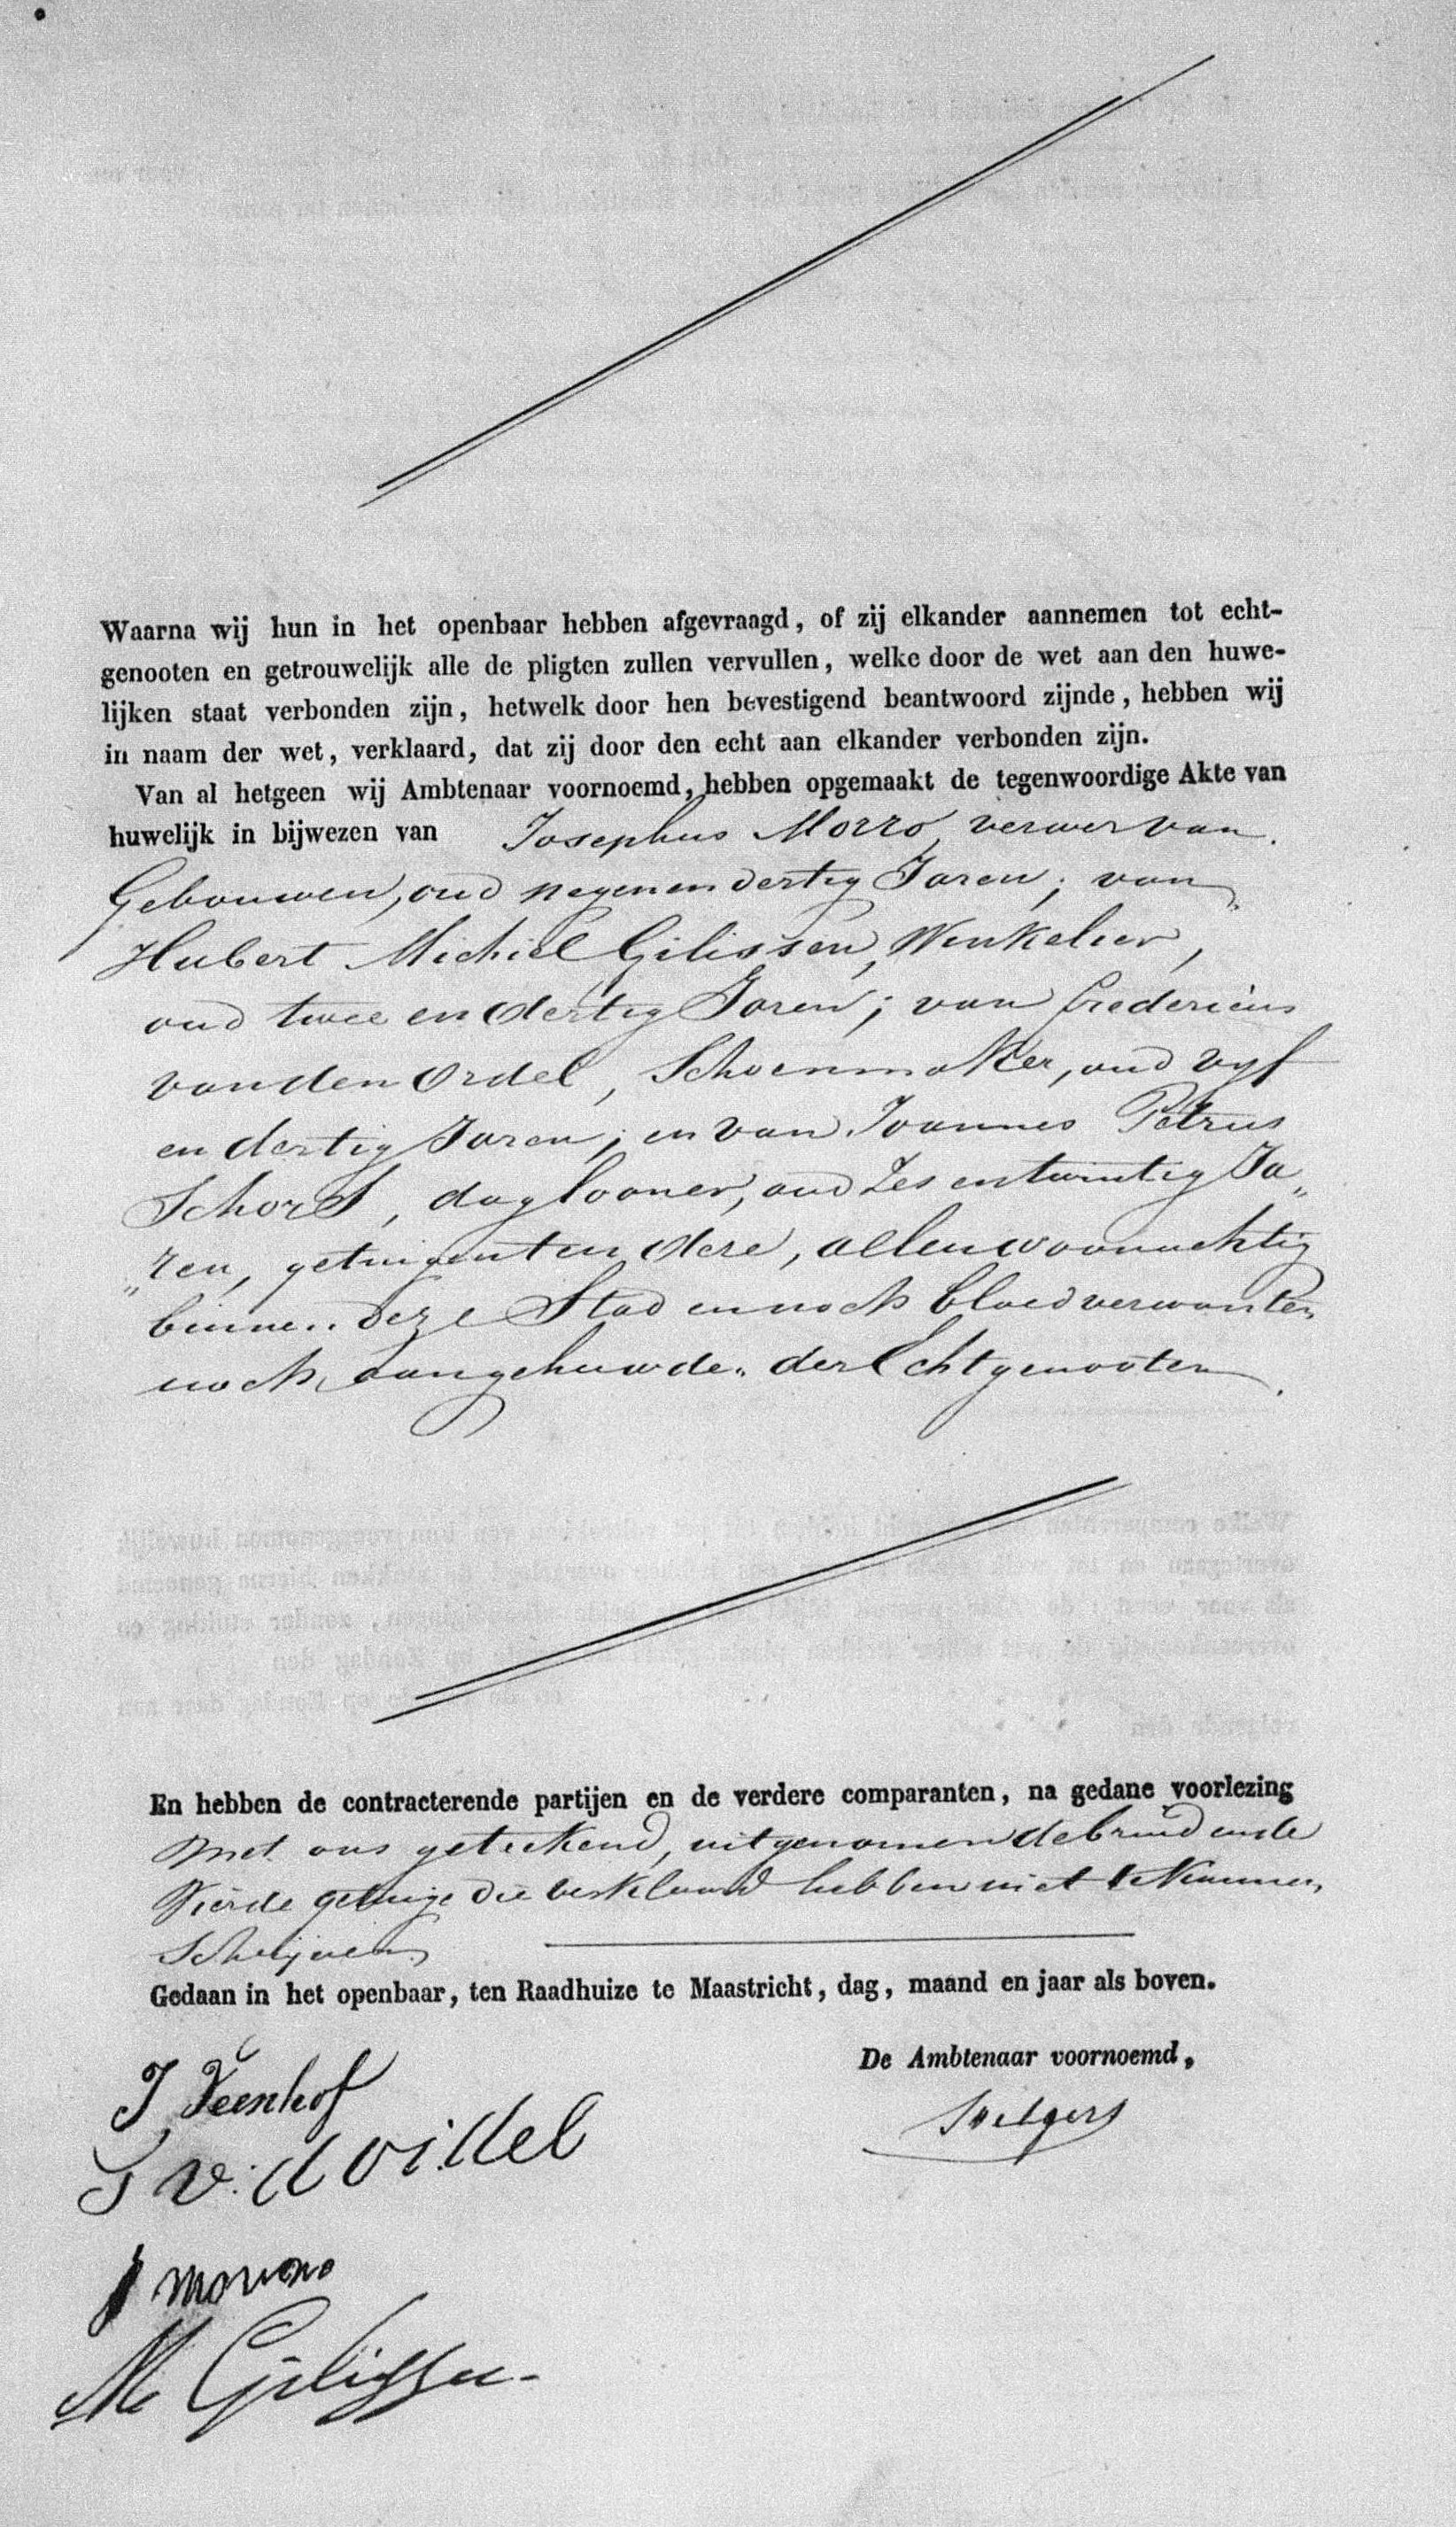 Waarna wij hun in het openbaar hebben afgevraagd, of zij elkander aannemen tot echt-
genooten en getrouwelijk alle de pligten zullen vervullen, welke door de wet aan den huwe-
lijken staat verbonden zijn, hetwelk door hen bevestigend beantwoord zijnde, hebben wij
in naam der wet, verklaard, dat zij door den echt aan elkander verbonden zijn.
Van al hetgeen wij Ambtenaar voornoemd, hebben opgemaakt de tegenwoordige Akte van
huwelijk in bijwezen van Josephus Morro, verwer van
Gebouwen, oud negenendertig Jaren; van
Hubert Michiel Gilissen, Winkelier,
oud twee en dertig Jaren; van Fredericus
van den Ordel, Schoenmaker, oud vyf
en dertig Jaren; en van Joannes Petrus
Schors, daglooner, oud Zes entwintig Ja„
„ren, getuigen ten dere, allen woonachtig
binnen deze Stad en noch bloedverwanten
noch aangehuwden der Echtgenooten.
En hebben de contracterende partijen en de verdere comparanten, na gedane voorlezing
met ons geteekend, uitgenomen de bruid en de
Vierde getuige die verklaard hebben niet te kunnen
Schrijven
Gedaan in het openbaar, ten Raadhuize te Maastricht, dag, maand en jaar als boven.
De Ambtenaar voornoemd,
J Veenhof
v: d
J Morro
M Gilissen